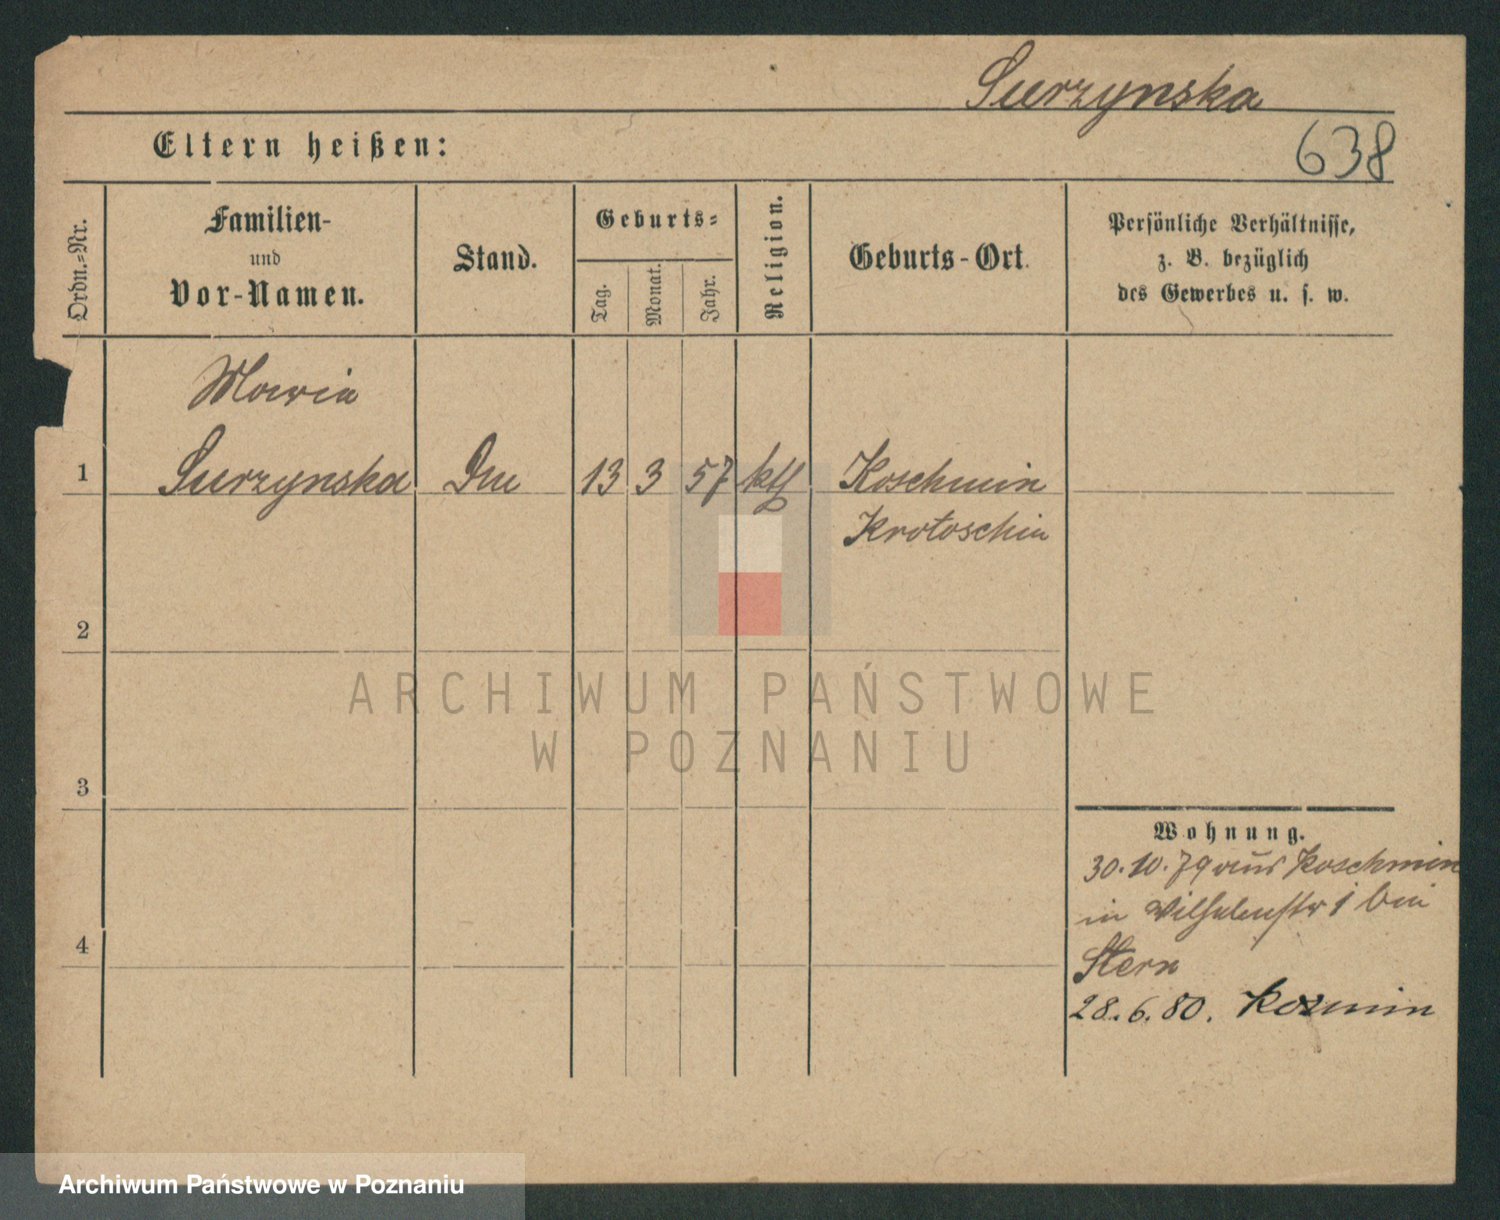 Surzynska
Eltern heißen:
638
Ordn.=Nr.
Familien-
und
Vor-Namen.
Stand.
Geburts=
Tag.
Monat.
Jahr.
Religion.
Geburts-Ort.
Persönliche Verhältnisse,
z. B. bezüglich
des Gewerbes u. s. w.
Maria
1 Surzynska 13 3 57 kth Koschmin
Krotoschin
2
ARCHIWUM PAŃSTWOWE
W POZNANIU
3
Wohnung.
30.10.79 aus Koschmin
in Wilhelmstr 1 bei
4
Stern
28.6.80. Kozmin
Archiwum Państwowe w Poznaniu